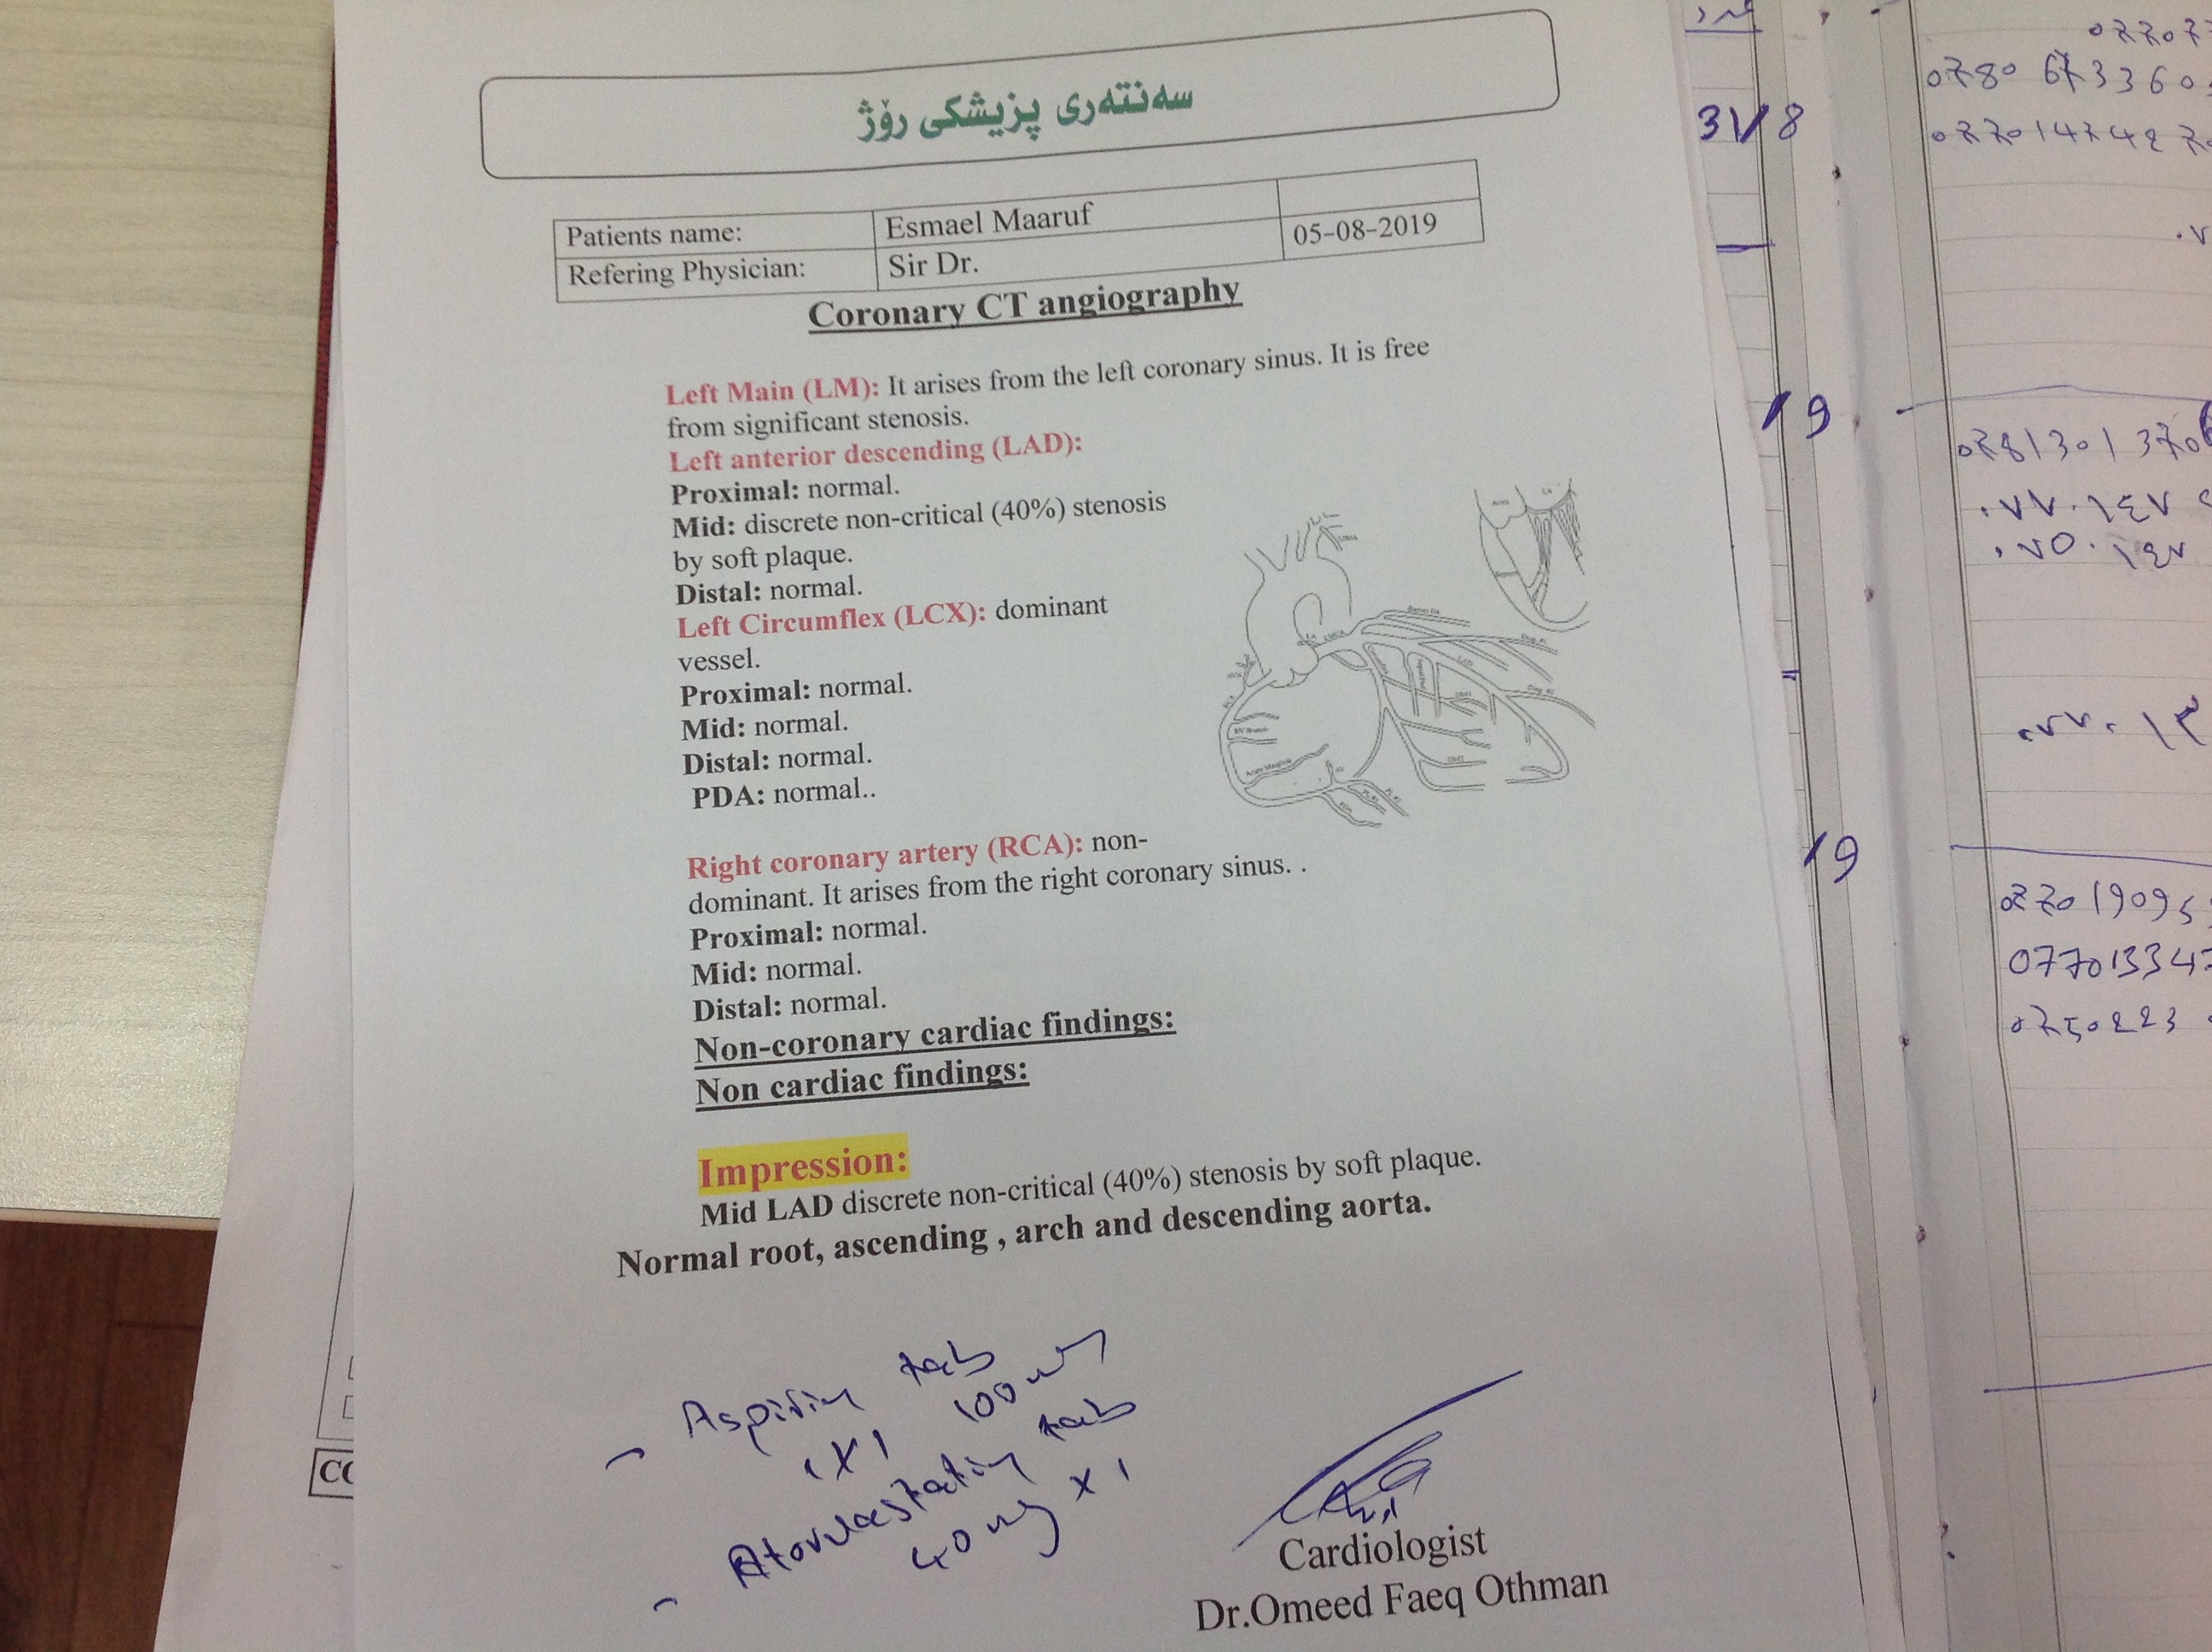 سەنتەری پزیشکی رۆژ
Patients name: Esmael Maaruf
Refering Physician: Sir Dr. 05-08-2019
Coronary CT angiography
Left Main (LM): It arises from the left coronary sinus. It is free
from significant stenosis.
Left anterior descending (LAD):
Proximal: normal.
Mid: discrete non-critical (40%) stenosis
by soft plaque.
Distal: normal.
Left Circumflex (LCX): dominant
vessel.
Proximal: normal.
Mid: normal.
Distal: normal.
PDA: normal..
Right coronary artery (RCA): non-
dominant. It arises from the right coronary sinus. .
Proximal: normal.
Mid: normal.
Distal: normal.
Non-coronary cardiac findings:
Non cardiac findings:
Impression:
Mid LAD discrete non-critical (40%) stenosis by soft plaque.
Normal root, ascending , arch and descending aorta.
- Aspirin tab
1X1 100 mg
- Atorvastatin tab
40 mg x 1
Cardiologist
Dr.Omeed Faeq Othman
31/8
19
19